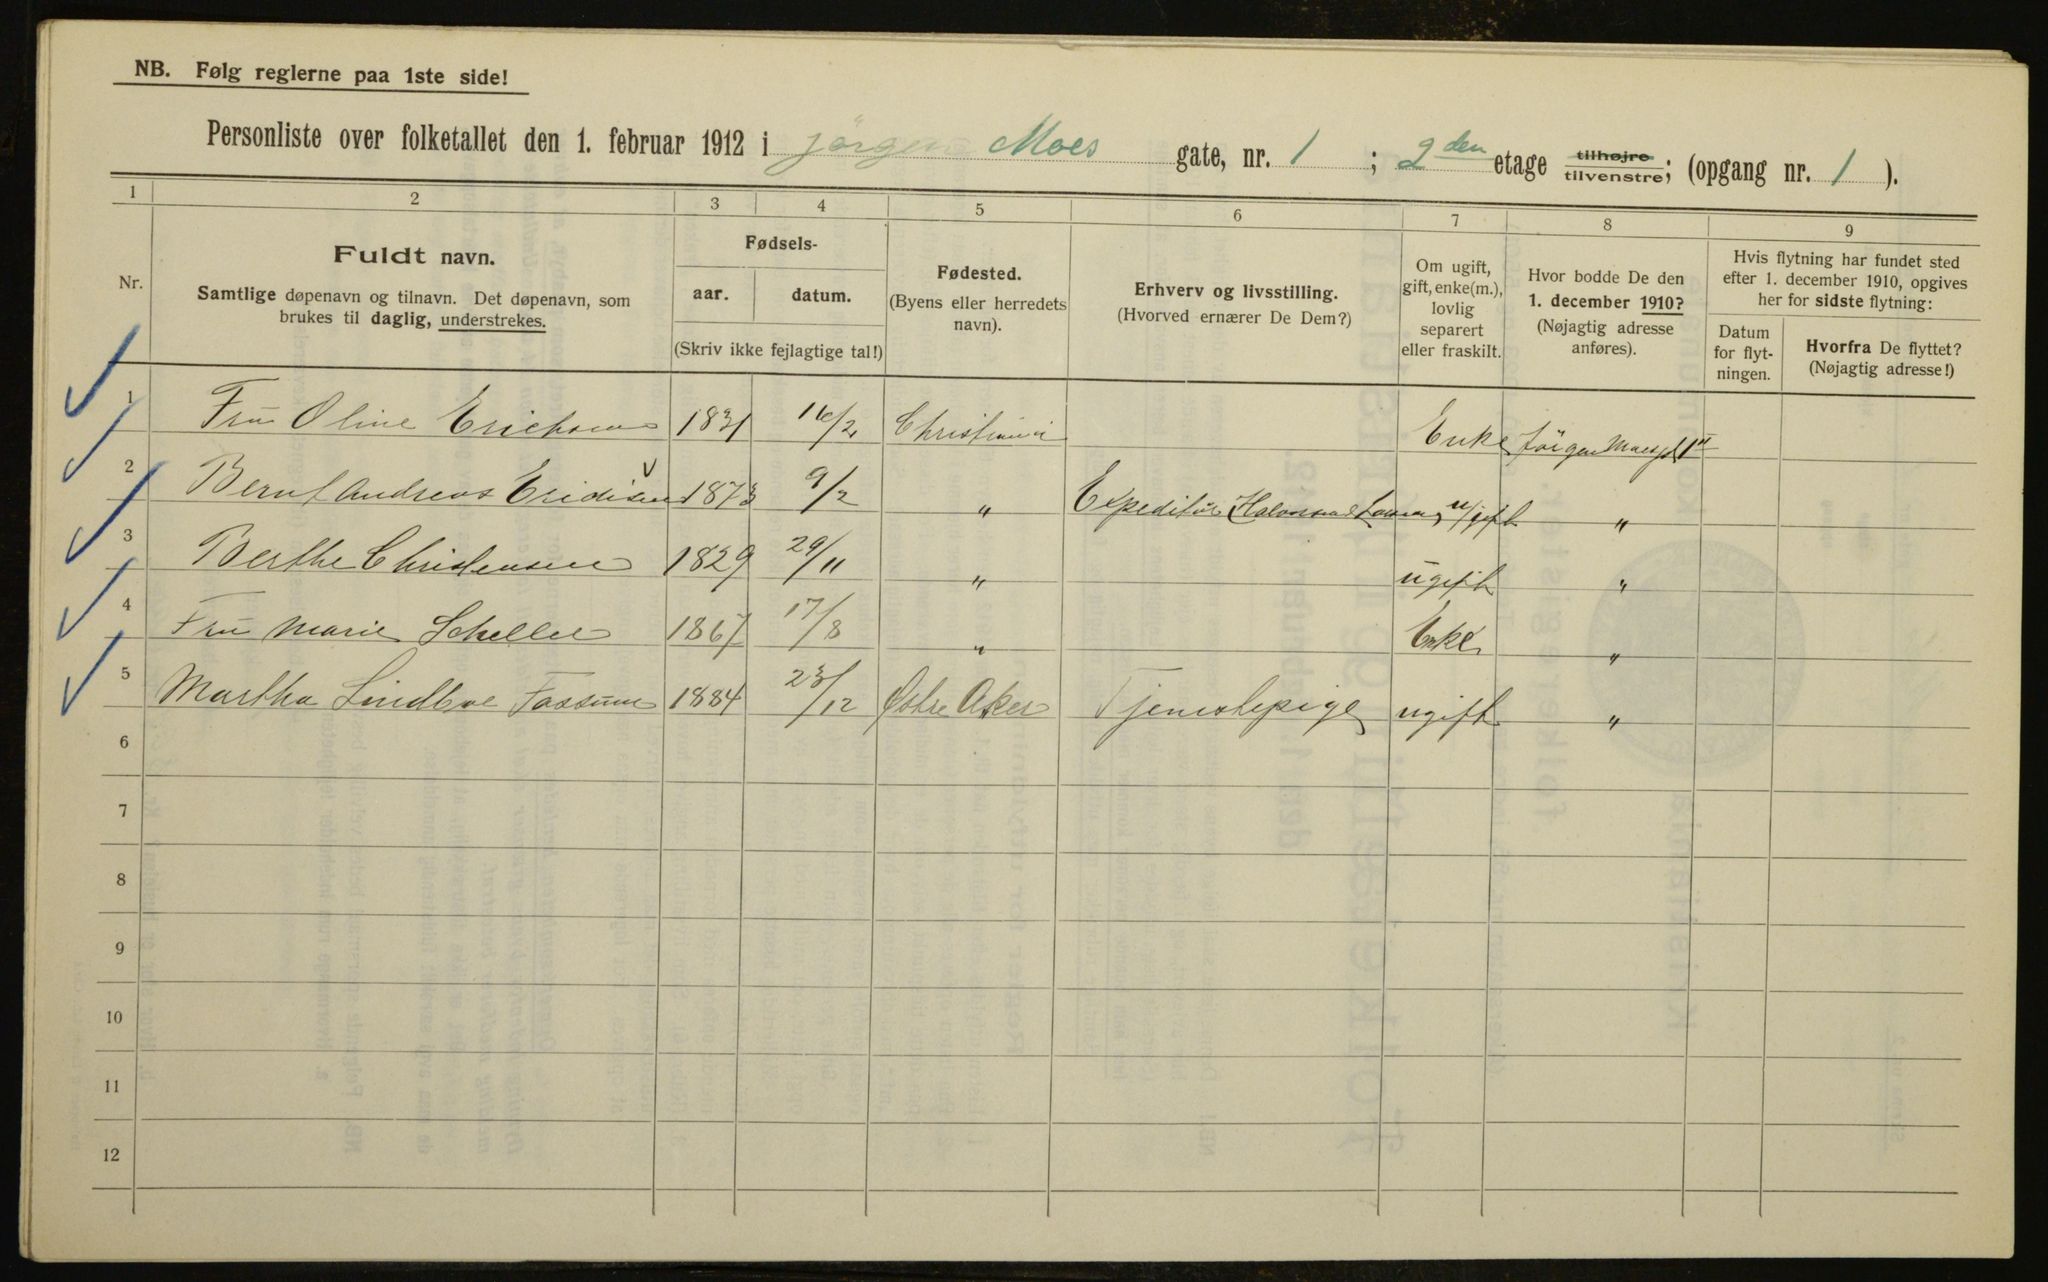 NB. Følg reglerne paa 1ste side!
Personliste over folketallet den 1. februar 1912 i Jørgen Moes gate, nr. 1 ; 2den etage tilhøjre tilvenstre; (opgang nr. 1 ).
1 2 3 4 5 6 7 8 9
Nr.
Fuldt navn.
Samtlige døpenavn og tilnavn. Det døpenavn, som
brukes til daglig, understrekes.
Fødsels-
aar. datum.
(Skriv ikke fejlagtige tal!)
Fødested.
(Byens eller herredets
navn).
Erhverv og livsstilling.
(Hvorved ernærer De Dem?)
Om ugift,
gift, enke(m.),
lovlig
separert
eller fraskilt.
Hvor bodde De den
1. december 1910?
(Nøjagtig adresse
anføres).
Hvis flytning har fundet sted
efter 1. december 1910, opgives
her for sidste flytning:
Datum
for flyt-
ningen.
Hvorfra De flyttet?
(Nøjagtig adresse!)
1 Frü Oline Erichsen 1831 16/2 Christiania Enke Jörgen Moesgt 1 II
2 Bernt Andreas Eridisen 1873 9/2 " Expeditör u/gift "
3 Berthe Christensen 1829 29/11 " ugift "
4 Frü Marie Scheller 1867 17/8 " Enke "
5 Martha Lindboe Fossum 1884 23/12 Østre Aker Tjenestepige ugift "
6
7
8
9
10
11
12